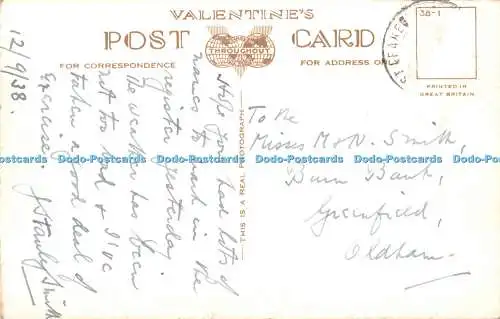 VALENTINE'S
POST CARD
THROUGHOUT
FOR CORRESPONDENCE
FOR ADDRESS ONLY
38-1
PRINTED IN
GREAT BRITAIN
THIS IS A REAL PHOTOGRAPH
12/9/38.
Hope you had lots of
names to mark in the
register yesterday
The weather has been
not too bad & I've
taken a good deal of
Exercise.
J Stanley Smith
To the
Misses M & N. Smith,
Burn Bank,
Greenfield,
Oldham.
Dodo-Postcards Dodo-Postcards Dodo-Postcards Dodo-Postcards Dodo-Postcards